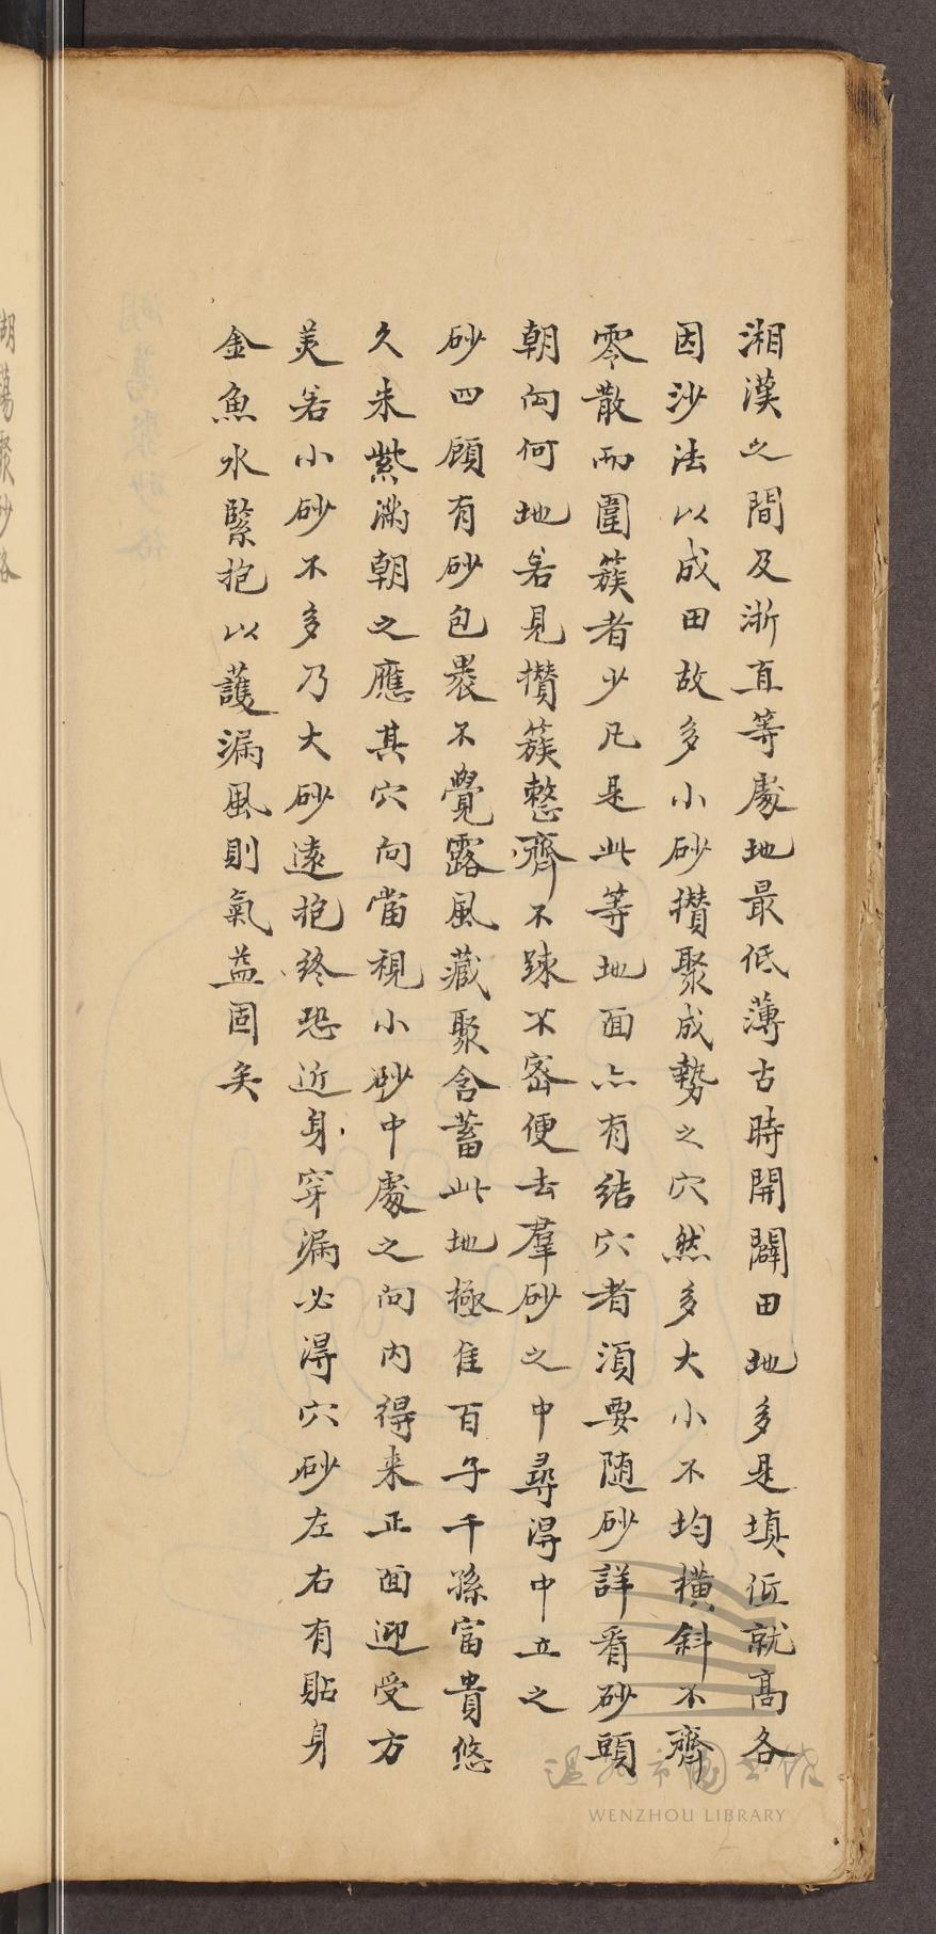 湘漢之間及浙直等處地最低薄古時開闢田地多是填低就高各
因沙法以成田故多小砂攢聚成勢之穴然多大小不均橫斜不齊
零散而圍簇者少凡是此等地面亦有結穴者須要随砂詳看砂頭
朝向何地若見攢簇整齊不踈不密便去羣砂之中尋得中立之
砂四顧有砂包裹不覺露風藏聚含蓄此地極佳百子千孫富貴悠
久朱紫滿朝之應其穴向當視小砂中處之向內得来正面迎受方
美若小砂不多乃大砂遠抱終恐近身穿漏必得穴砂左右有貼身
金魚水緊抱以護漏風則氣益固矣
湖蕩聚砂格
溫州市圖書館
WENZHOU LIBRARY